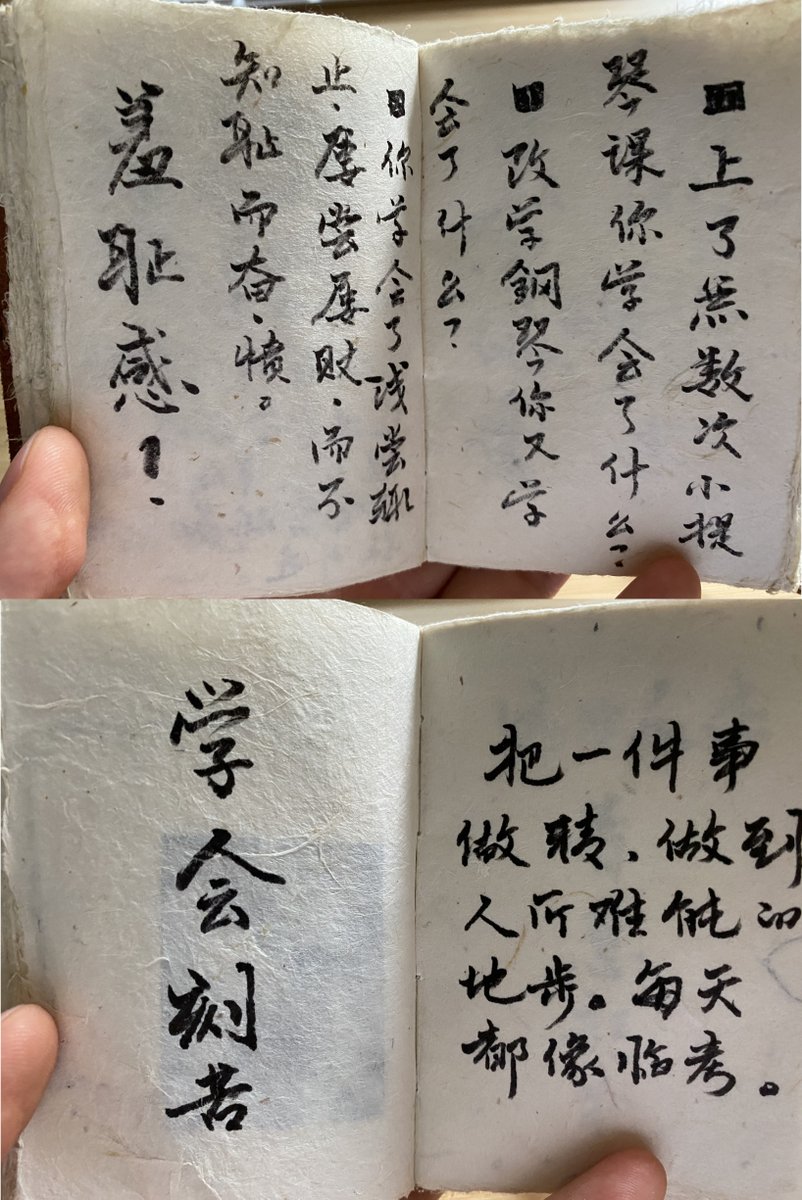 上了無数次小提
琴课你学会了什么？
改学鋼琴你又学
会了什么？
你学会了浅尝辄
止、屡尝屡败、而不
知耻而奋、愤。
羞耻感！
学会刻苦
把一件事
做精、做到
人所难能的
地步。每天
都像临考。